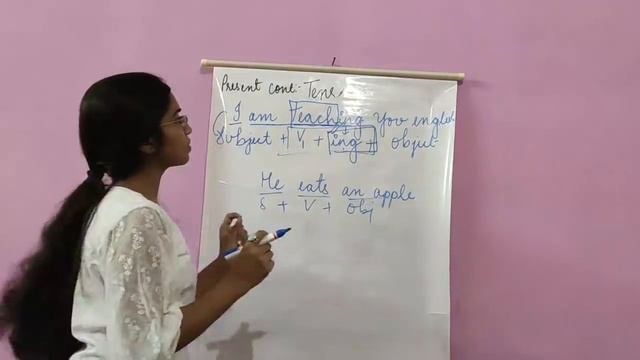 Present cont:- Tens
I am teaching you englis
Subject + V1 + ing + object
He eats an apple
S + V + Obj